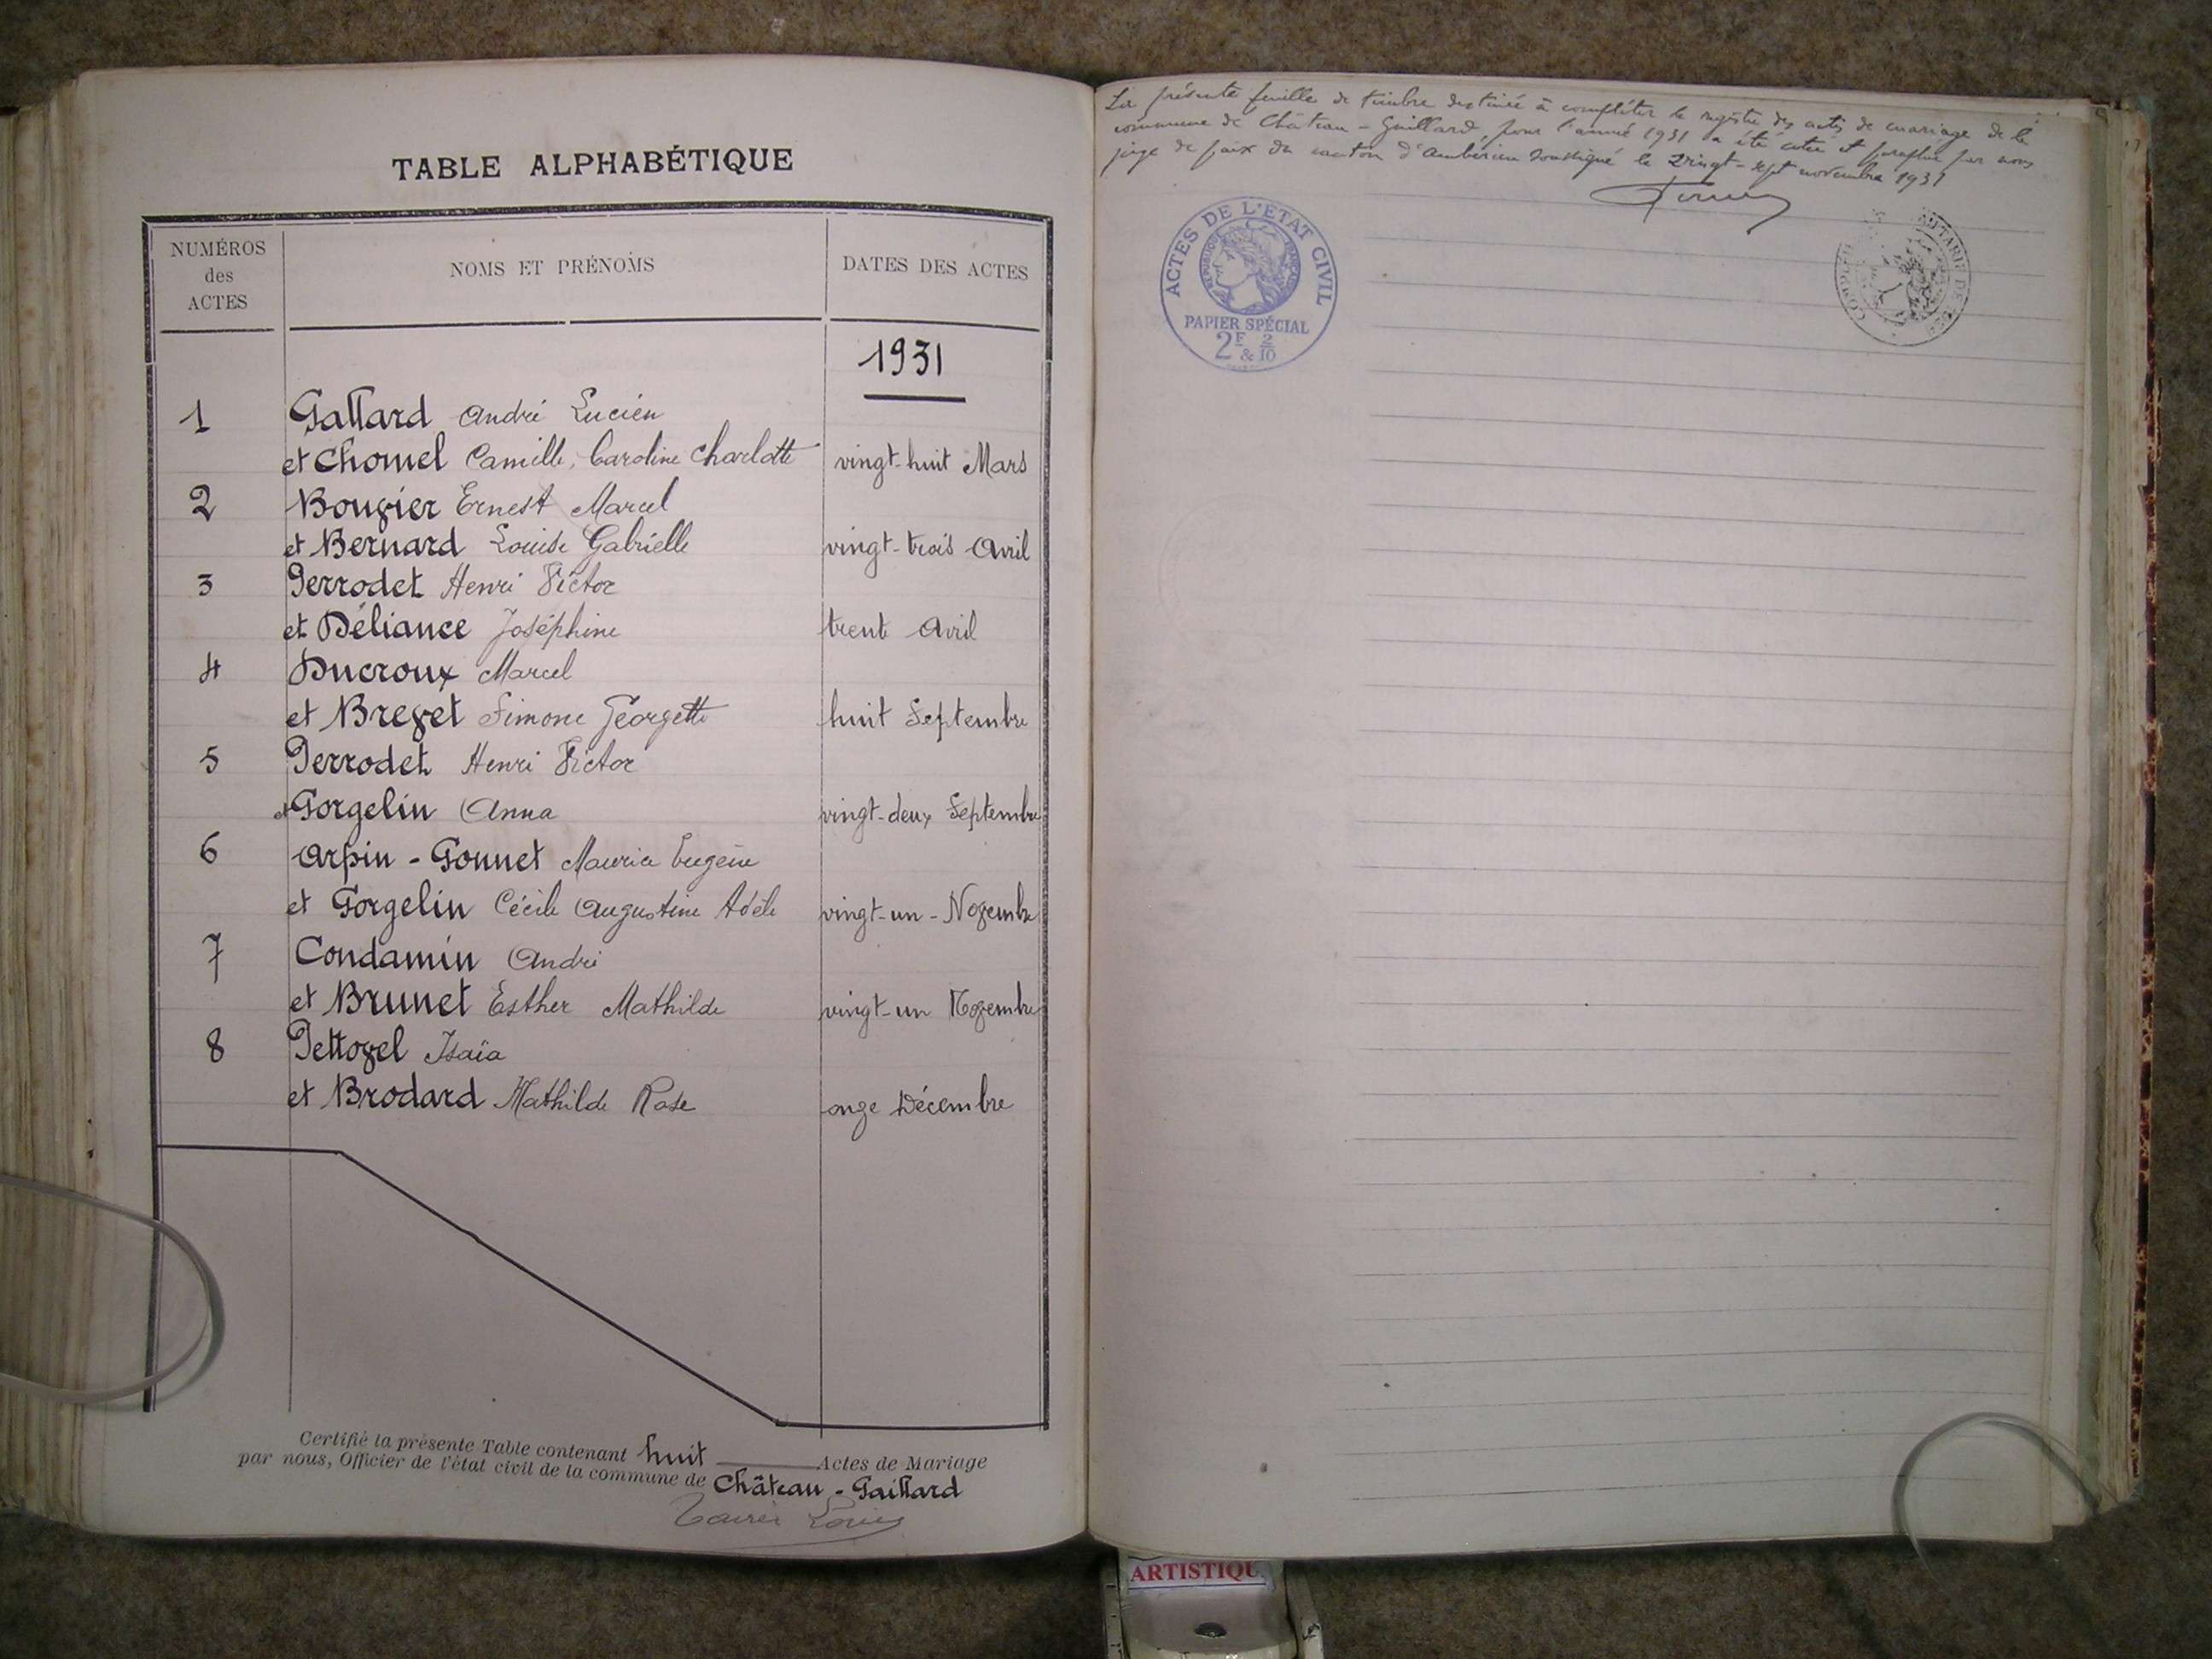 TABLE ALPHABÉTIQUE
NUMÉROS
des
ACTES
NOMS ET PRÉNOMS
DATES DES ACTES
1931
1 Gallard André Lucien
et Chomel Camille, Caroline Charlotte vingt-huit Mars
2 Bouvier Ernest Marcel
et Bernard Louise Gabrielle vingt-trois Avril
3 Perrodet Henri Victor
et Déliance Joséphine trente Avril
4 Ducroux Marcel
et Brevet Simone Georgette huit Septembre
5 Perrodet Henri Victor
et Gorgelin Anna vingt-deux Septembre
6 Arpin - Gonnet Maurice Eugène
et Gorgelin Cécile Augustine Adèle vingt-un - Novembre
7 Condamin André
et Brunet Esther Mathilde vingt-un Novembre
8 Pettovel Isaïa
et Brodard Mathilde Rose onze Décembre
Certifié la présente Table contenant huit Actes de Mariage
par nous, Officier de l'état civil de la commune de Château - Gaillard
La présente feuille de timbre destinée à compléter le registre des actes de mariage de la
commune de Château - Gaillard, pour l'année 1931 a été cotée et paraphée par nous
juge de paix du canton d'Ambérieu soussigné le vingt-sept novembre 1931
ACTES DE L'ETAT CIVIL
REPUBLIQUE FRANÇAISE
PAPIER SPÉCIAL
2F & 2/10
ARTISTIQU